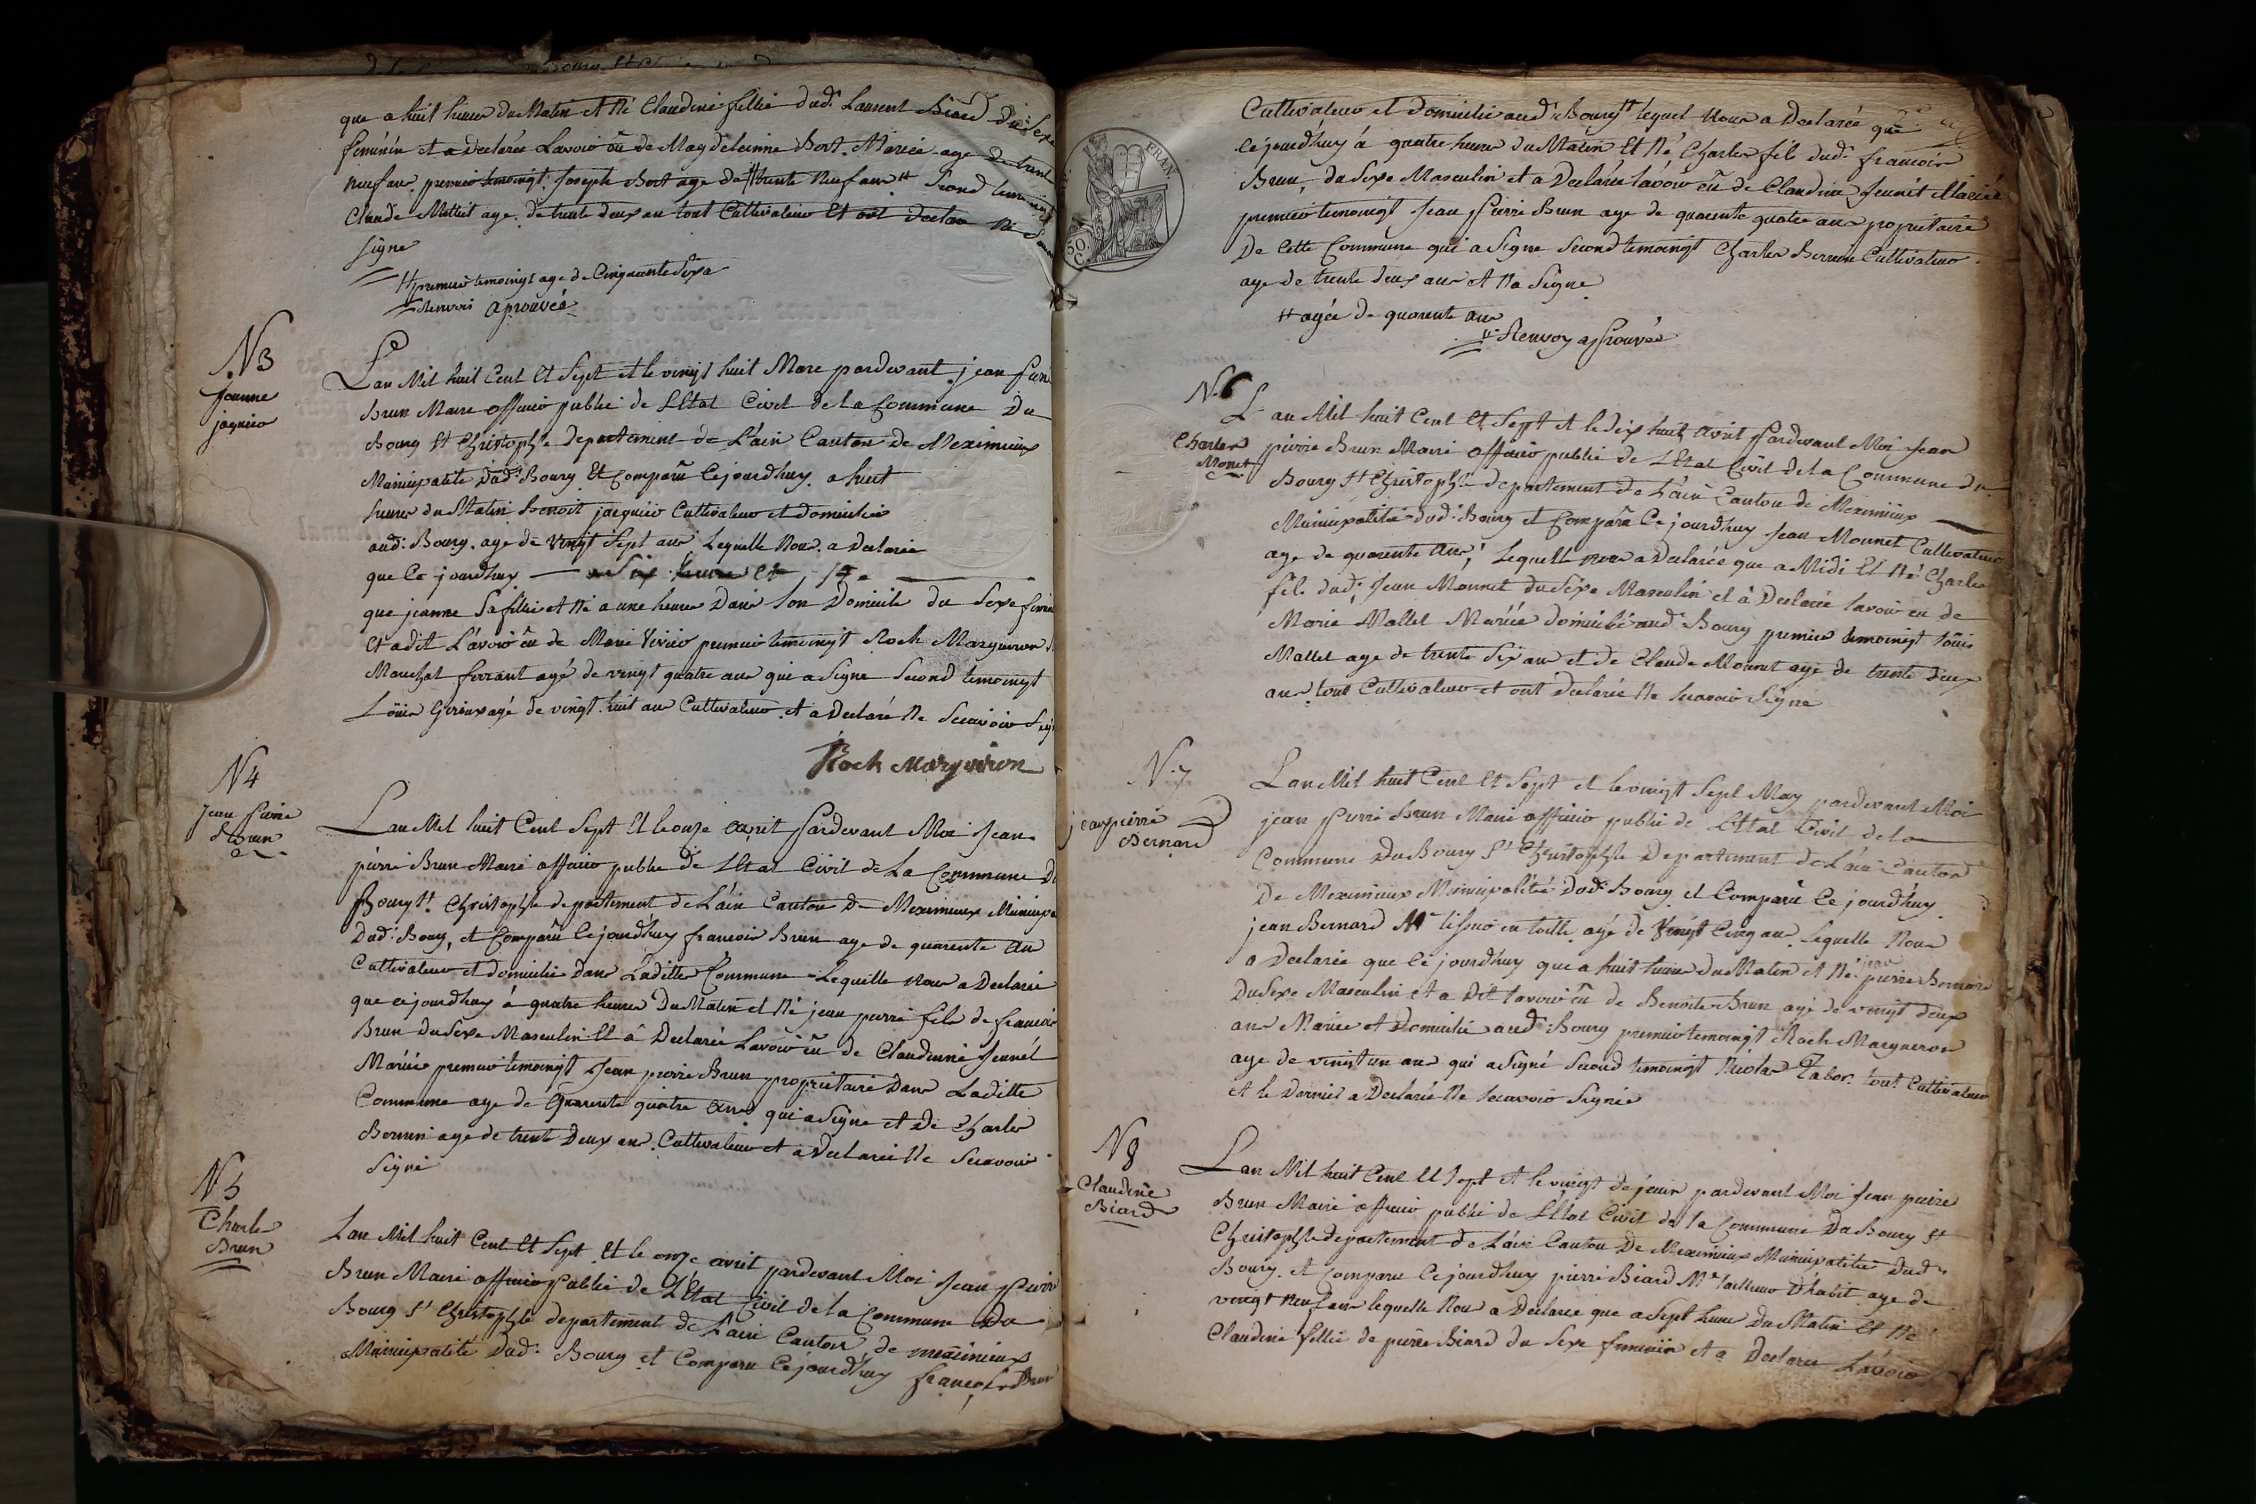 que a huit heure du Matin et Né Claudine fillie dud. Laurent Biard du Sexe
feminin et a declarée Lavoir eû de Magdeleinne Bort Mariée age de trente
neuf ans premier temoingt Joseph Bort age de trente neuf ans Second temoingt
Claude Molliet age de trente deux an tout Cultivateur et ont declare Ne
Signe
premier temoingt age de Cinquante Six a
Renvoi aprouvée
N 3
jeanne
jaquier
Lan Mil huit Cent et Sept et le vingt huit Mars pardevant jean pierre
Brun Maire officier public de LEtat Civil de la Commune Du
Bourg St Christophle departement de L'ain Canton de Meximieux
Municipalité dud. Bourg et Comparû Cejourdhuy a huit
heures du Matin Benoit jaquier Cultivateur et domicilié
aud. Bourg age de vingt Sept ans Lequelle Nous a declarée
que Ce jourdhuy
que jeanne Sa fillie et Né a une heure Dans Son Domicile du Sexe feminin
et a dit L'avoir eû de Marie Virier premier temoingt Roch Margueron
Marechal ferrant agé de vingt quatre ans qui a Signe Second temoingt
Loüis Giroux agé de vingt huit ans Cultivateur et a Declaré Ne Scavoir
Roch Margueron
N 4
Jean pierre
Brun
Lan Mil huit Cent Sept Et le onze avril pardevant Moi Jean
pierre Brun Maire officier public de LEtat Civil de La Commune Du
Bourg St Christophle departement de Lain Canton De Meximieux
Dud. Bourg, et Comparû Cejourdhuy francois Brun age de quarente an
Cultivateur et domicilié dans Laditte Commune Lequelle nous a Declarée
que cejourdhuy à quatre heures Du Matin et Né jean pierre fils de francois
Brun du Sexe Masculin Et à Declarée Lavoir eû de Claudinne Jeunét
Mariée premier temoingt Jean pierre Brun propriétaire Dans Laditte
Commune age de quarente quatre ans qui a Signe et De Charles
Bernin age de trent Deux ans Cultivateur et a Declarée Ne Scavoir
Signé
N 5
Charle
Brun
Lan Mil huit Cent Et Sept Et le onze avril pardevant Moi Jean pierre
Brun Maire officier public de L'Etat Civil de la Commune Du
Bourg St Christophle departement de L'ain Canton de meximieux
Municipalité Dud. Bourg et Comparu Cejourdhuy francois Brun
FRAN.
50
C.
Cultivateur et domicilié aud. Bourg lequel Nous a Declarée que
Cejourdhuy à quatre heures du Matin Et Né Charles fils dud. francois
Brun, du Sexe Masculin et a Declarée lavoir eû de Claudine Jeunét Mariée
premier temoingt Jean pierre Brun age de quarente quatre ans propriétaire
De Cette Commune qui a Signe Second temoingt Charles Bernin Cultivateur
age de trente deux ans et Na Signe
agée de quarente ans
Renvoy approuvée
N. 6
Charles
Monet
L'an Mil huit Cent Et Sept et le dix huit avril pardevant Moi Jean
pierre Brun Maire officier public de LEtat Civil de la Commune du
Bourg St Christophle departement de L'ain Canton de Meximieux
Municipalité dud. Bourg et Comparû Ce jourdhuy Jean Monnet Cultivateur
age de quarente ans, Lequelle nous a Declarée que a Midi Et Né Charles
fils dud. Jean Monnet du Sexe Masculin et à Declarée lavoir eu de
Marie Mallet Mariée domicilié aud. Bourg premier temoingt loüis
Mallet age de trente Six ans et de Claude Monnet age de trente deux
ans tout Cultivateur et ont Declarée Ne Scavoir Signe
N. 7
jean pierre
Bernard
Lan Mil huit Cent Et Sept et le vingt Sept May pardevant Moi
jean pierre Brun Maire officier public de LEtat Civil de la
Commune Du Bourg St Christophle Departement de L'ain Canton
De Meximieux Municipalité dud. Bourg et Comparû Ce jourdhuy
jean Bernard Me tissier en toille agé de Vingt Cinq ans Lequelle Nous
a Declarée que Ce jourdhuy que a huit heures du Matin et Né jean pierre Bernard
Du Sexe Masculin et a Dit lavoir eû de Benoite Brun agé de vingt deux
ans Mariée et Domicilié aud. Bourg premier temoingt Roch Margueron
age de vingt un ans qui a Signé Second temoingt Nicolas Tabor tout Cultivateur
et le Dernier a Declarée Ne Scavoir Signée
N 8
Claudine
Biard
Lan Mil huit Cent Et Sept et le vingt de juin pardevant Moi Jean pierre
Brun Maire officier public de L'Etat Civil de la Commune Du Bourg St
Christophle departement de L'ain Canton De Meximieux Municipalité Dud.
Bourg et Comparu Ce jourdhuy pierre Biard Me tailleur D'habit age de
vingt neuf ans lequelle Nous a Declarée que a Sept heures Du Matin Et Né
Claudine fillie de pierre Biard du Sexe feminin et a Declaree Lavoir